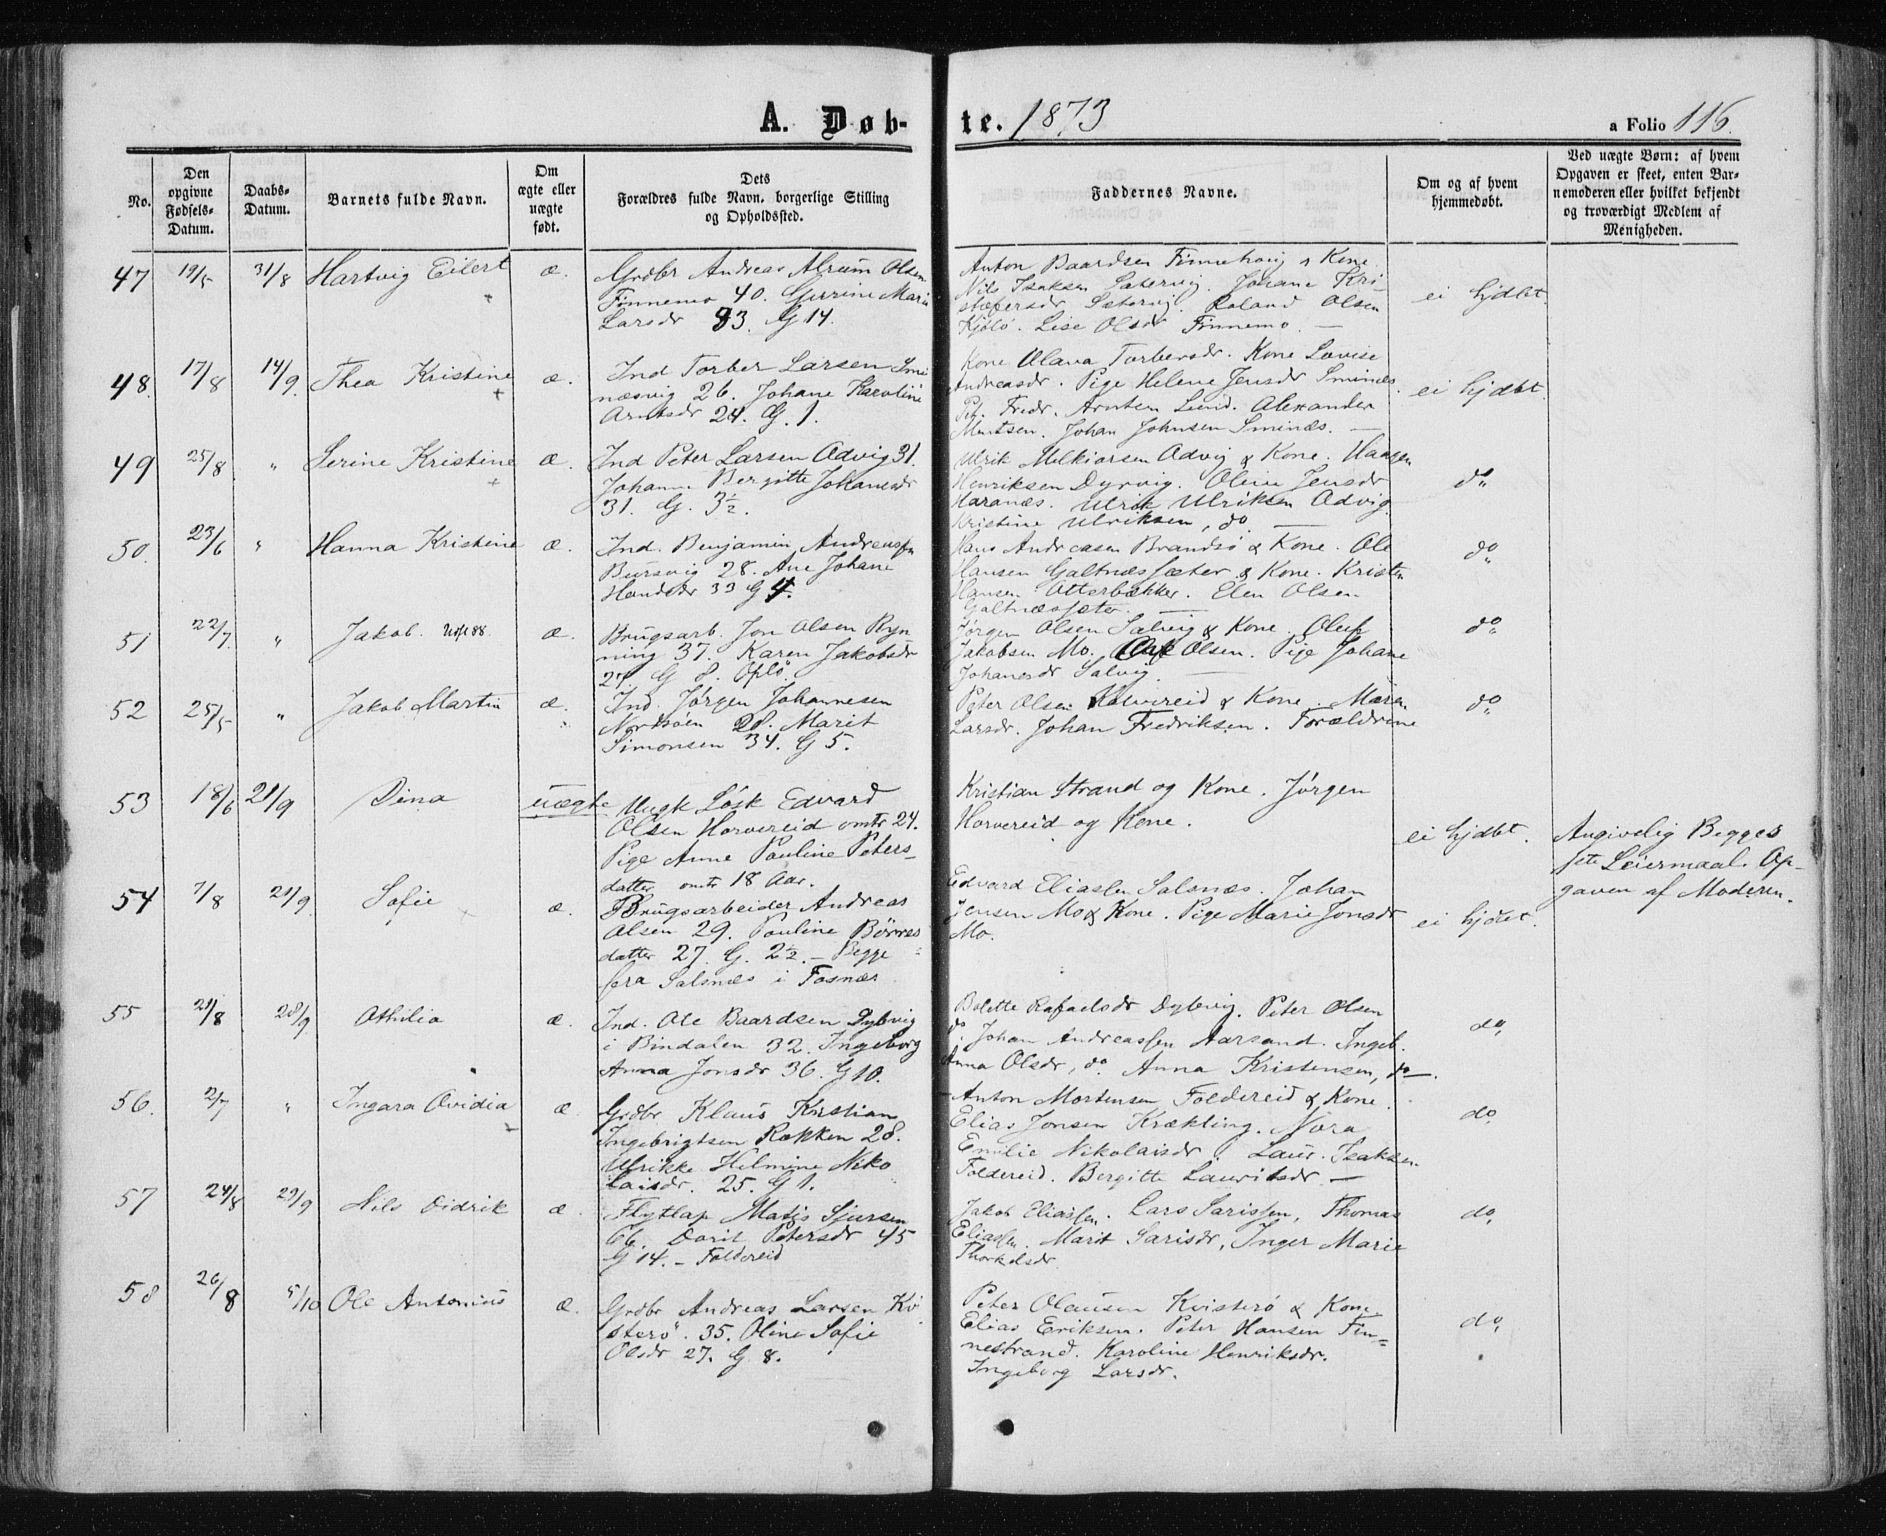 A. Døb-
te. 1873
a Folio 116.
No.
Den
opgivne
Fødsels-
Datum.
Daabs-
Datum.
Barnets fulde Navn.
Om
ægte eller
uægte
født.
Dets
Forældres fulde Navn, borgerlige Stilling
og Opholdssted.
Faddernes Navne.
Om og af hvem
hjemmedøbt.
Ved uægte Børn: af hvem
Opgaven er skeet, enten Bar-
nemoderen eller hvilket bekjendt
og troværdigt Medlem af
Menigheden.
47 19/5 31/8 Hartvig Eilert æ.
Grdbr Andreas Olsen
Finnemo 40.
Larsdr 33. G 14.
Anton Baardsen Finnehaug & Kone.
Nils Isaksen Sætervig. Johane Kri-
stofersdr Sætervig. Roland Olsen
Kjølø. Lise Olsdr Finnemo. —
ei hjdbt.
48. 17/8 14/9. Thea Kristine æ.
Ind Torber Larsen Smi
næsvig 26. Johane Karoline
Arntsdr 24. G. 1.
Kone Olava Torbersdr. Kone Lovise
Andreasdr. Pige Helene Jensdr Sminæs.
Pet. Fredr. Arntsen Lund. Alexander
Johan Johnsen Sminæs. —
ei hjdbt.
49 25/8 " Serine Kristine æ.
Ind Peter Larsen Advig 31.
Johanna Bergitte Johansdr
31. G. 3½.
Ulrik Melkiorsen Advig & Kone. Haagen
Henriksen Dyrvig. Oline Jensdr
Haranæs. Ulrik Ulriksen Advig
Kristine Ulriksen, do. —
do
50. 23/6 " Hanna Kristine æ.
Ind. Benjamin Andreassen
Bursvig 28. Ane Johane
Hansdr 33 G 4.
Hans Andreasen Brandsø & Kone. Ole
Hansen Galtnæssæter & Kone. Kristen
Hansen Otterbækker. Elen Olsen
Galtnæssæter. —
do
51 22/7. " Jakob. æ.
Brugsarb. Jon Olsen Ryn
ning 37. Karen Jakobsdr
27. G 8. Oplø.
Jørgen Olsen Salvig & Kone. Oluf
Jakobsen Mo. Olsen. Pige Johane
Johansdr Salvig. —
do
52 25/5 " Jakob Martin æ.
Ind. Jørgen Johannesen
28. Marit
Simonsen 34. G 5.
Peter Olsen Horvereid & Kone. Maren
Larsdr. Johan Fredriksen. Forældrene
do
53 18/6 21/9 Dina uægte
Ungk Løsk Edvard
Olsen Horvereid omtr 24.
Pige Anne Pauline Peters-
datter omtr 18 Aar.
Kristian Strand og Kone. Jørgen
Horvereid og Kone.
ei hjdbt.
Angivelig Begges
1ste Leiermaal. Op-
gaven af Moderen.
54 7/8 21/9. Sofie æ.
Brugsarbeider Andreas
Olsen 29. Pauline Børres-
datter 27. G. 2½. – Begge
fra Salsnæs i Fosnæs.
Edvard Eliassen Salsnæs. Johan
Jensen Mo & Kone. Pige Marie Jonsdr
Mo.
ei hjdbt.
55 21/8 28/9 Othilia æ.
Ind. Ole Baardsen Dybvig
i Bindalen 32. Ingeborg
Anna Jonsdr 36. G 10.
Bolette Rafaelsdr Dybvig. Peter Olsen
do. Johan Andreassen Aarsand. Ingeb.
Anna Olsdr, do. Anna Kristensen, do —.
do,
56. 2/7 " Ingara Ovidia æ.
Grdbr Klaus Kristian
Ingebrigtsen Rækken 28.
Ulrikke Helmine Niko
laisdr. 25. G 1.
Anton Mortensen Foldereid & Kone.
Elias Jonsen Krækling. Nora
Emilie Nikolaisdr. Laur. Isaksen
Foldereid. Bergitte Lauritsdr. —
do,
57 24/8 29/9 Nils Didrik æ.
Flytlap Matis Sjursen
66. Dorit Petersdr 45
G 14. – Foldereid
Jakob Eliassen. Lars Sarissen, Thomas
Eliassen. Marit Sarisdr, Inger Marie
Thorkelsdr.
do,
58 26/8 5/10 Ole Antonius æ.
Grdbr Andreas Larsen Kvi
sterø. 35. Oline Sofie
Olsdr 27. G 8.
Peter Olausen Kvisterø & Kone.
Elias Eriksen. Peter Hansen Fin-
nestrand. Karoline Henriksdr.
Ingeborg Larsdr.
do,